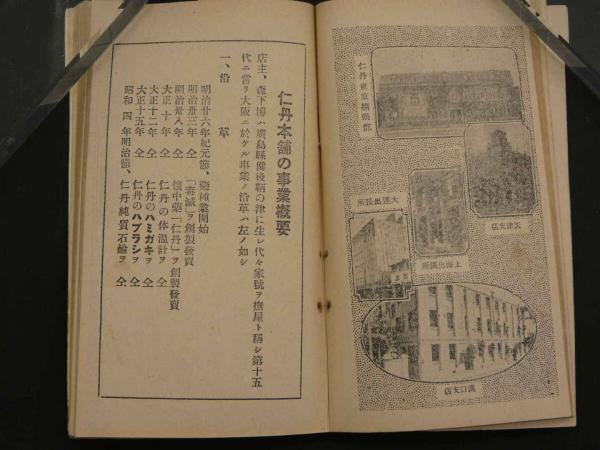 仁丹東京機關部
大連出張所
天津支店
上海出張所
漢口支店
仁丹本舗の事業概要
店主、森下博ハ廣島縣備後鞆の津に生レ代々家號ヲ撫屋ト稱シ第十五
代ニ當リ大阪ニ於ケル事業ノ沿革ハ左ノ如シ
一、沿革
明治廿六年紀元節、業開始
明治卅三年仝「毒滅」ヲ創製發賣
明治卅八年仝懷中藥「仁丹」ヲ創製發賣
大正十年仝仁丹の体温計ヲ仝
大正十一年仝仁丹のハミガキヲ仝
大正十五年仝仁丹のハブラシヲ仝
昭和四年明治節、仁丹純質石鹼ヲ仝